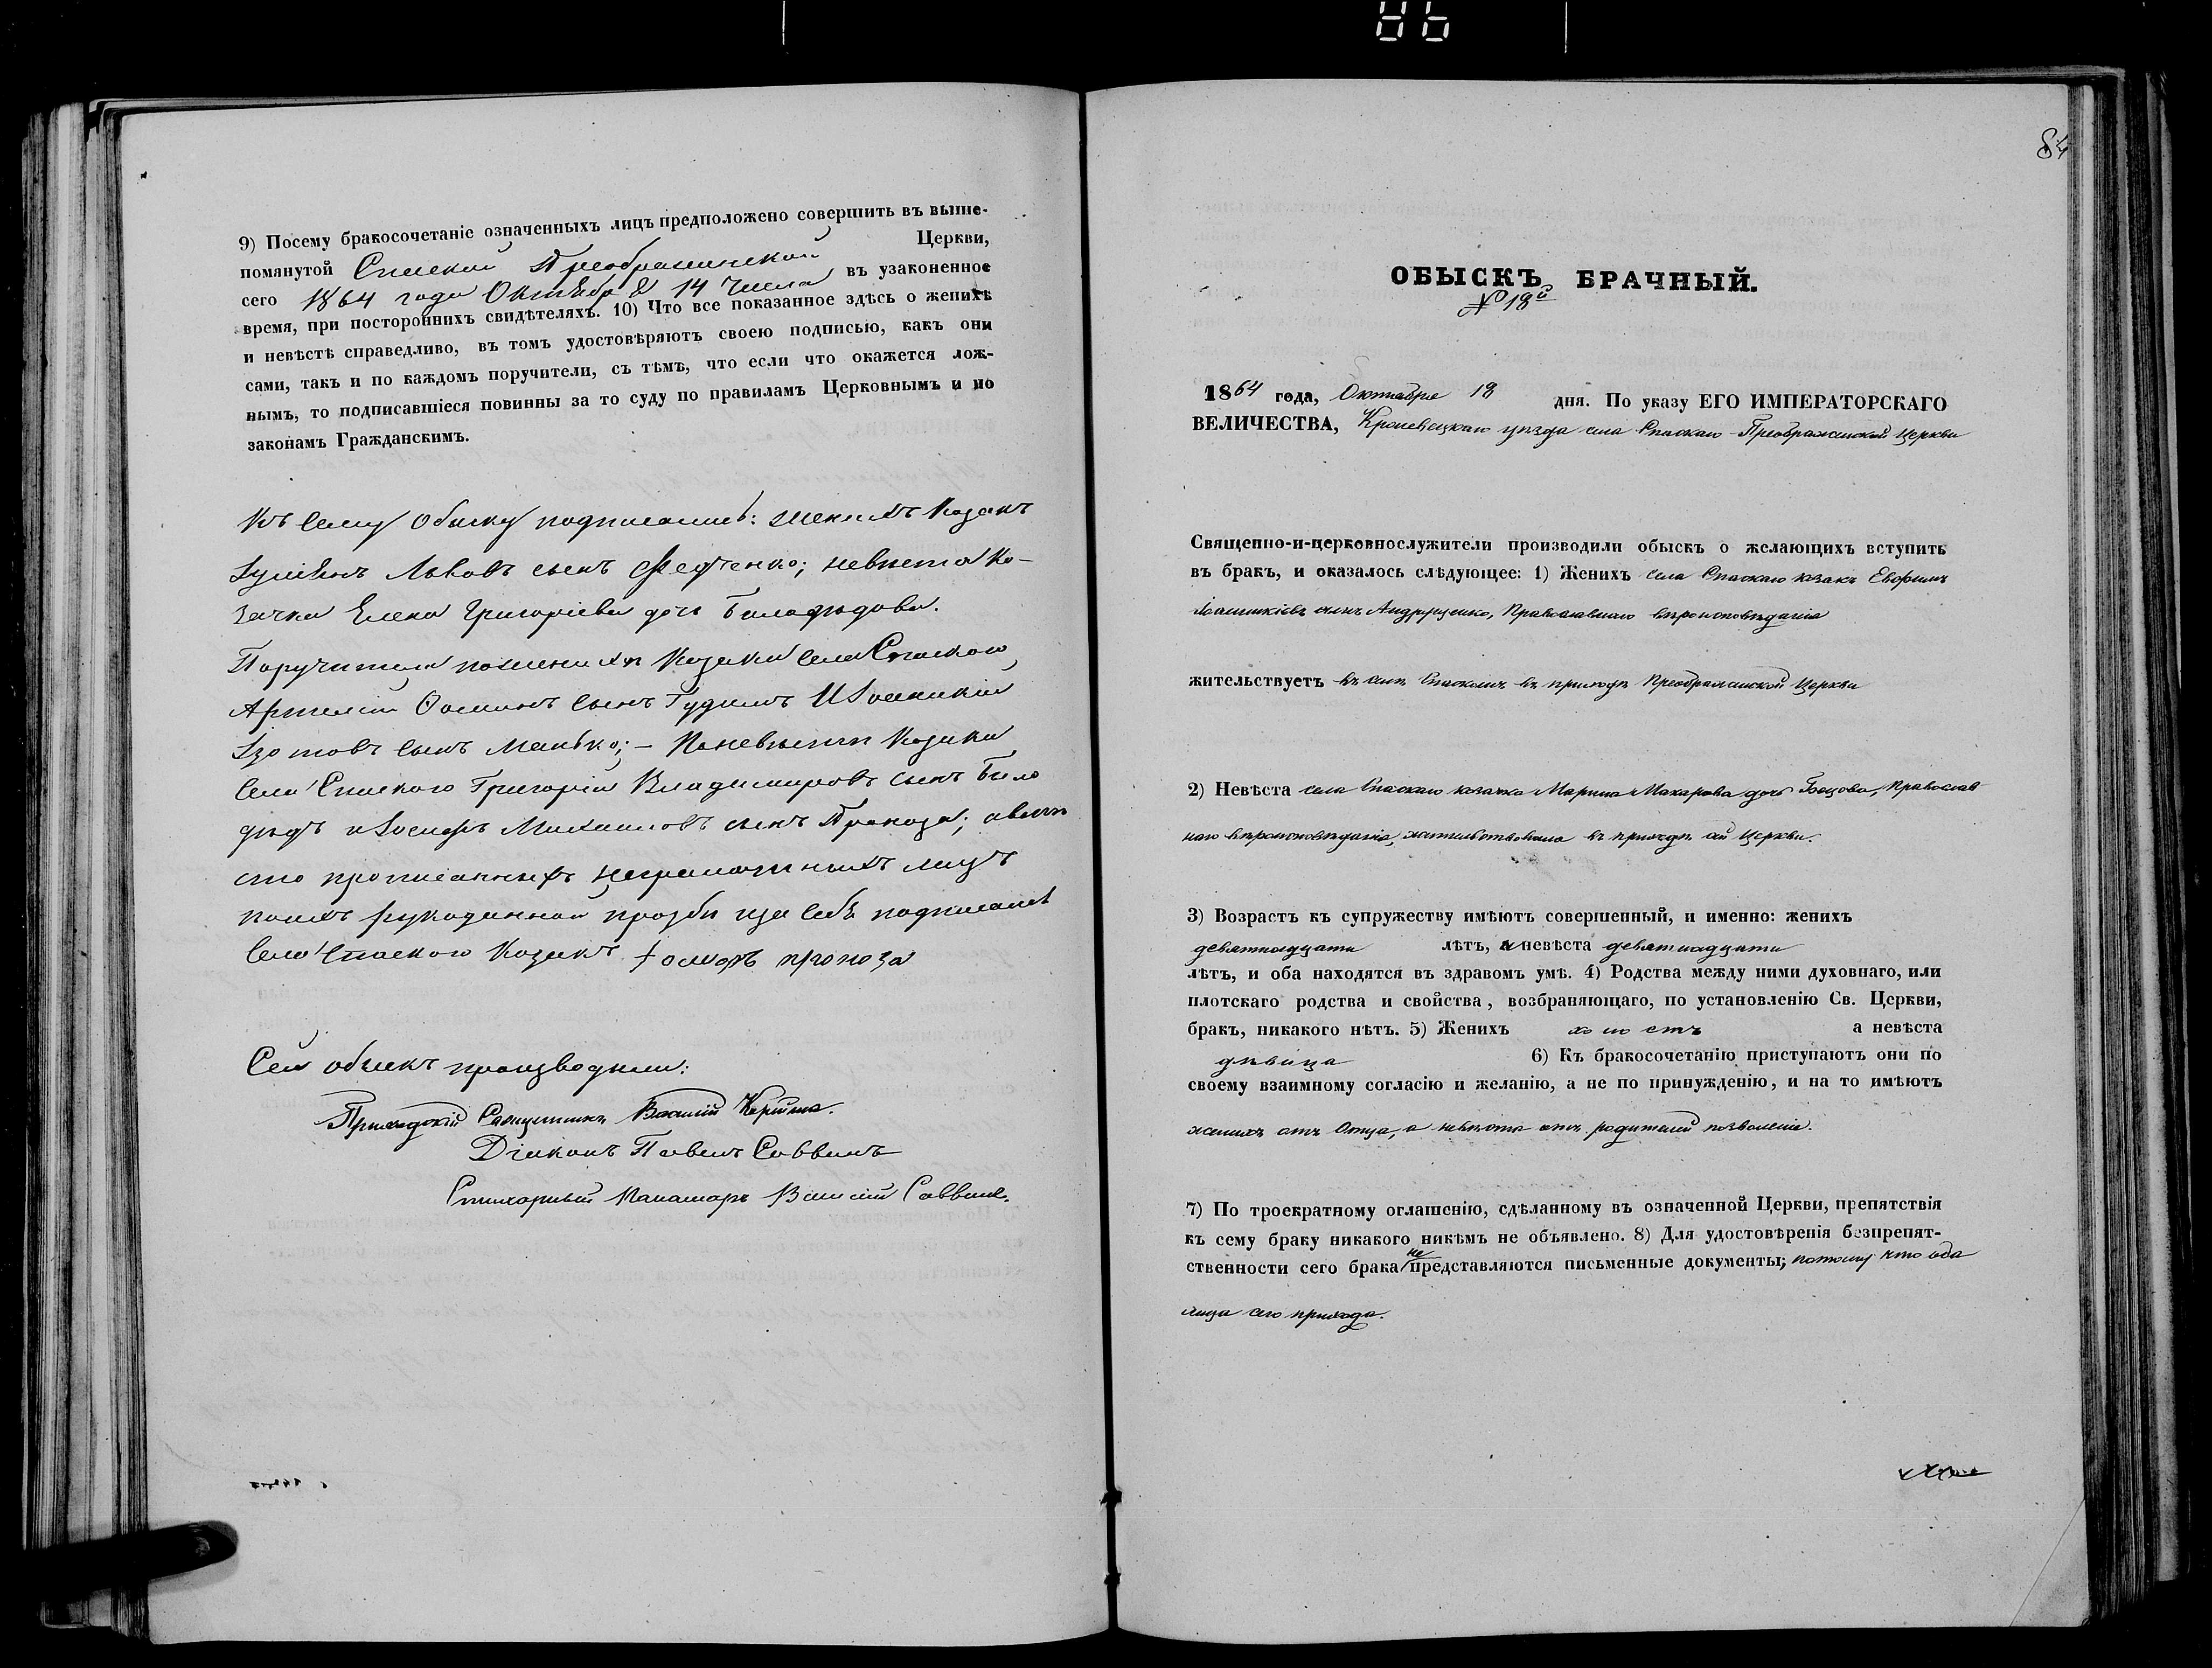 9) Посему бракосочетаніе означенныхъ лицъ предположено совершить въ выше-
помянутой Спаской Преображенской Церкви,
сего 1864 года Октября 14 числа въ узаконенное
время, при постороннихъ свидѣтеляхъ. 10) Что все показанное здѣсь о женихѣ
и невѣстѣ справедливо, въ томъ удостовѣряютъ своею подписью, какъ они
сами, такъ и по каждомъ поручители, съ тѣмъ, что если что окажется лож-
нымъ, то подписавшіеся повинны за то суду по правиламъ Церковнымъ и по
законамъ Гражданскимъ.
Къ Сему Обыску подписались: женихъ Козакъ
Львовъ сынъ Федченко; невѣста Ко-
зачка Елена Григоріева дочь Биладѣдова.
Поручители поженихѣ Козаки села Спаского
Артемій сынъ Гудимъ Иоанникій
Изотовъ сынъ Манько; – Поневѣстѣ Козаки
села Спаского Григорій Владимировъ сынъ Било
дѣдъ Иосифъ Михаиловъ сынъ Прокоза; авмѣ
сто прописанныхъ неграмотныхъ лицъ
поихъ рукоданной прозби иза себѣ подписался
села Спаского Козакъ Иосифъ прокоза
Сей обыскъ производили:
Приходскій Священникъ Василій
Діаконъ Павелъ Саввинъ
Стихарный Панамарь Василій Саввинъ.
84
ОБЫСКЪ БРАЧНЫЙ.
№ 18й
1864 года, Октября 18 дня. По указу ЕГО ИМПЕРАТОРСКАГО
ВЕЛИЧЕСТВА, Кролевецкаго уѣзда села Спаскаго Преображенской Церкви
Священно-и-церковнослужители производили обыскъ о желающихъ вступить
въ бракъ, и оказалось слѣдующее: 1) Женихъ села Спаскаго козакъ Евфимъ
Іоанникіевъ сынъ Андрущенко, Православнаго вѣроисповѣданія
жительствуетъ въ селѣ Спаскомъ въ приходѣ Преображенской Церкви
2) Невѣста села Спаскаго козачка Марина Макарова дочь Боцова, Православ
наго вѣроисповѣданія, жительствовала въ приходѣ сей Церкви.
3) Возрастъ къ супружеству имѣютъ совершенный, и именно: женихъ
девятнадцати лѣтъ, а невѣста девятнадцати
лѣтъ, и оба находятся въ здравомъ умѣ. 4) Родства между ними духовнаго, или
плотскаго родства и свойства, возбраняющаго, по установленію Св. Церкви,
бракъ, никакого нѣтъ. 5) Женихъ холостъ а невѣста
дѣвица 6) Къ бракосочетанію приступаютъ они по
своему взаимному согласію и желанію, а не по принужденію, и на то имѣютъ
женихъ отъ Отца, а невѣста отъ родителей позволеніе.
7) По троекратному оглашенію, сдѣланному въ означенной Церкви, препятствія
къ сему браку никакого никѣмъ не объявлено. 8) Для удостовѣренія безпрепят-
ственности сего брака не представляются письменные документы; потому что оба
лица сего прихода.